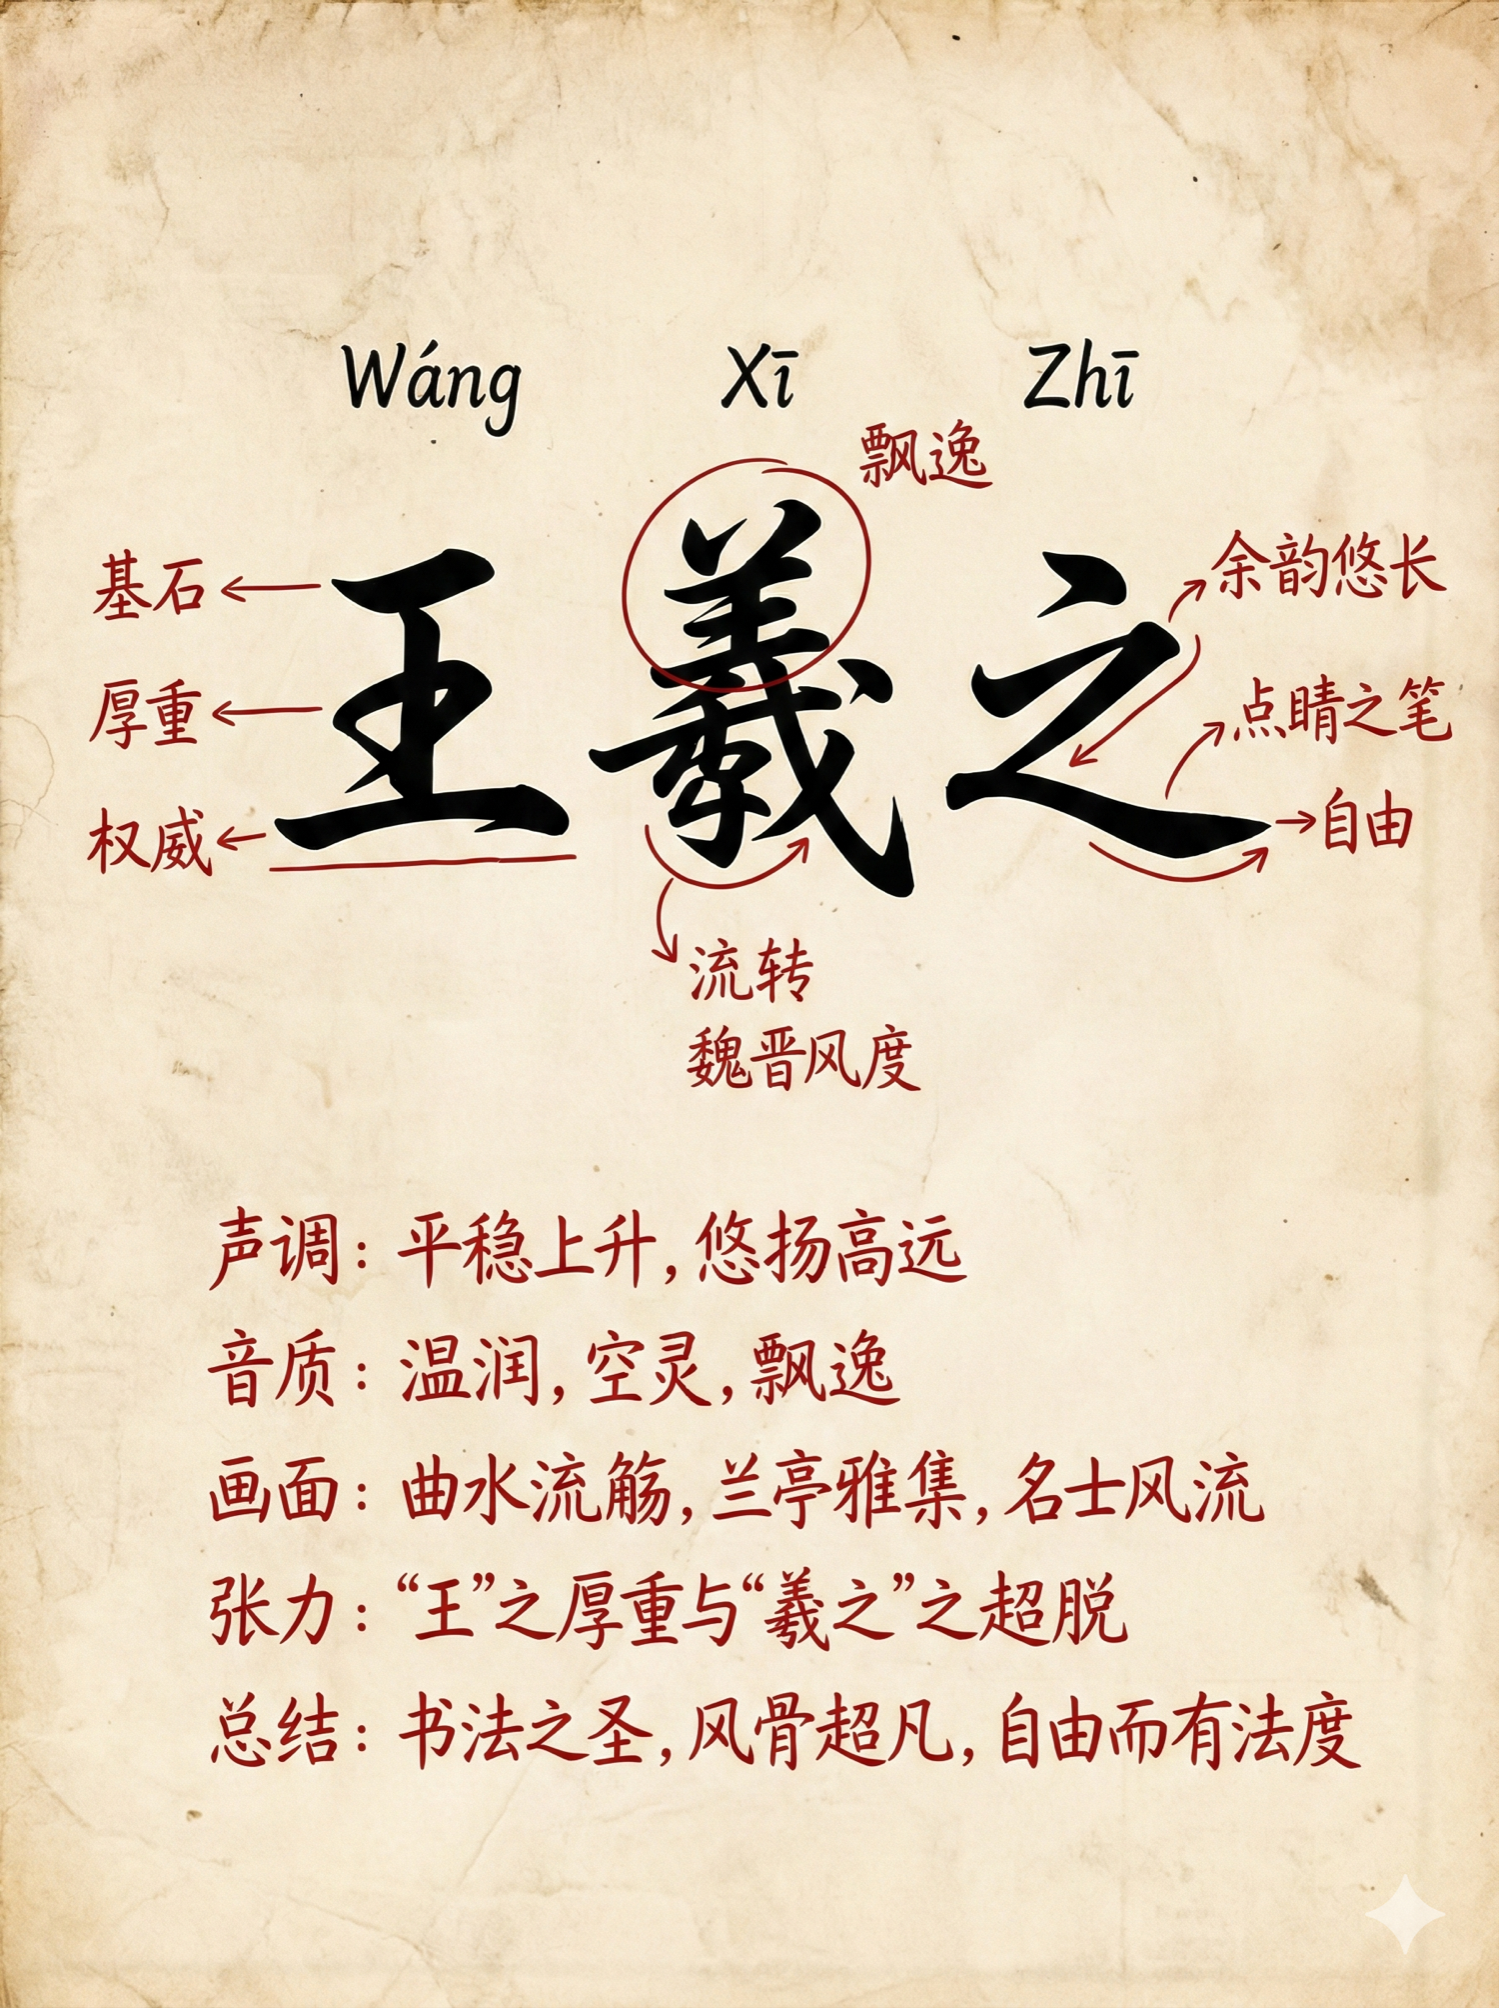 Wáng Xī Zhī
飘逸
王羲之
基石
厚重
权威
余韵悠长
点睛之笔
自由
流转
魏晋风度
声调：平稳上升，悠扬高远
音质：温润，空灵，飘逸
画面：曲水流觞，兰亭雅集，名士风流
张力：“王”之厚重与“羲之”之超脱
总结：书法之圣，风骨超凡，自由而有法度